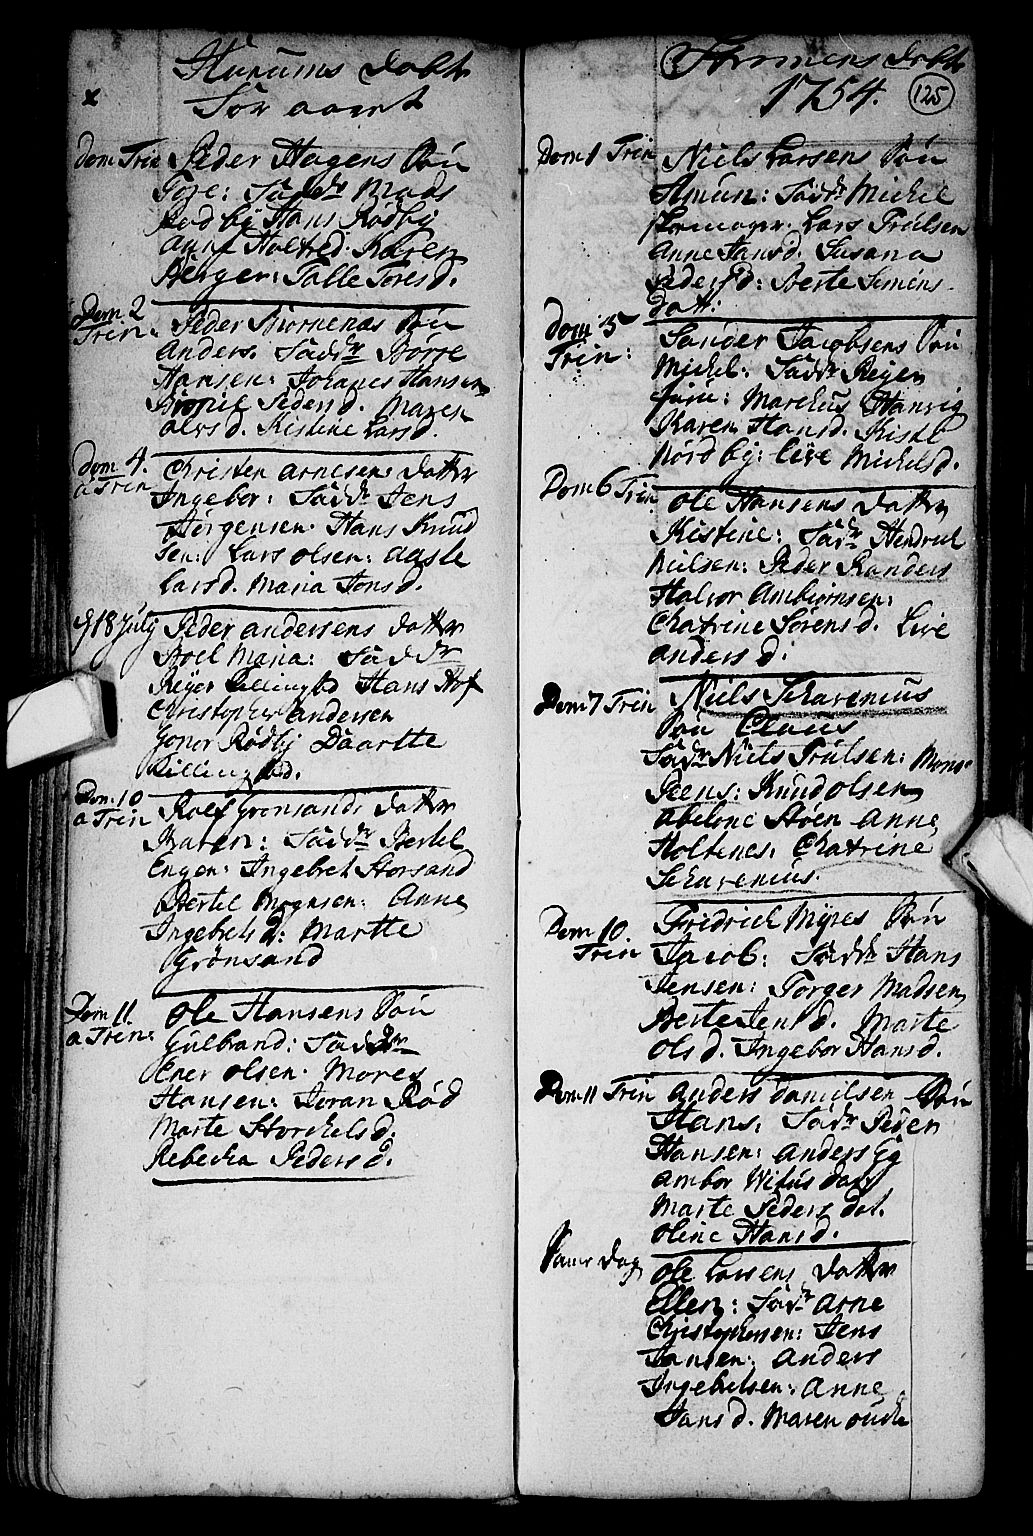 Hurums Døbte
for aaret
Dom Trin Peder Hagens Søn
Tore: Fadd: Mads
Rødby Hans Rødby
Holtred: Karen
Berger: Talle Toresd.
Dom 2 Trin: Peder Biornenæs Søn
Anders. Fadd: Børre
Hansen: Johanes Hansen
Pedersd. Maren
Kistine Larsd.
Dom 4. a Trin Christen Arnesens Datter
Ingebor: Fadd: Jens
Jørgensen. Hans Knud
sen: Lars Olsen: Aaste
Larsd. Maria Jonsd.
18 July Peder Andersens Datter
Maria: Fadd:
Reyer Killingstd Hans Hof
Christopher Andersen
Goner Rødby Daarthe
Killingstd.
Dom. 10 a Trin Rolf Grønsands Datter
Karen: Fadd: Bertel
Engen: Ingebret Storsand
Bertel Mognsen: Anne
Ingebrets D: Marthe
Grønsand
Dom 11 a Trin: Ole Hansens Søn
Gulbrand: Fadd:
Ener Olsen. Mores
Hansen: Joran Rød
Marte Storkelsd.
Rebecka Pedersd.
Strømens Døbte
1754. 125
Dom 1 Trin Niels Larsens Søn
Amun: Fadd: Michel
Lars Trulsen
Anne Jansd. Susana
Pedersd: Berte Simens-
datt:
Dom: 5 Trin: Sander Jacobsens Søn
Michel: Fadd: Reyer
Juru: Marchus Hanvig
Karen Hansd. Kisti
Nordby: Live Michelsd.
Dom 6 Trin Ole Hansens Datter
Kistine: Fadd: Hendrich
Nielsen: Peder Randers
Halvor Ambiørnsen:
Chatrine Sørensd. Live
Anders d:
Dom 7 Trin Niels Schavenius
Søn Claus
Fadd: Niels Trulsen: Mons
Peens: Knud Olsen
Abelone Støen Anne
Holtenes: Chatrine
Schavenius.
Dom 10 Trin Fridrich Myres Søn
Jacob: Fadd: Hans
Jensen: Torger Madsen
Berte Jensd. Marte
Olsd. Ingebor Hansd.
Dom 11 Trin Anders Danielsen Søn
Hans. Fadd: Peder
Hansen: Anders
Ambor Witus datt
Marte Peders dat.
Oline Hansd.
Same Dag Ole Larsens Datter
Ellen: Fadd: Arne
Christophersen: Jens
Jansen: Anders
Ingebretsen: Anne
Jansd. Maren